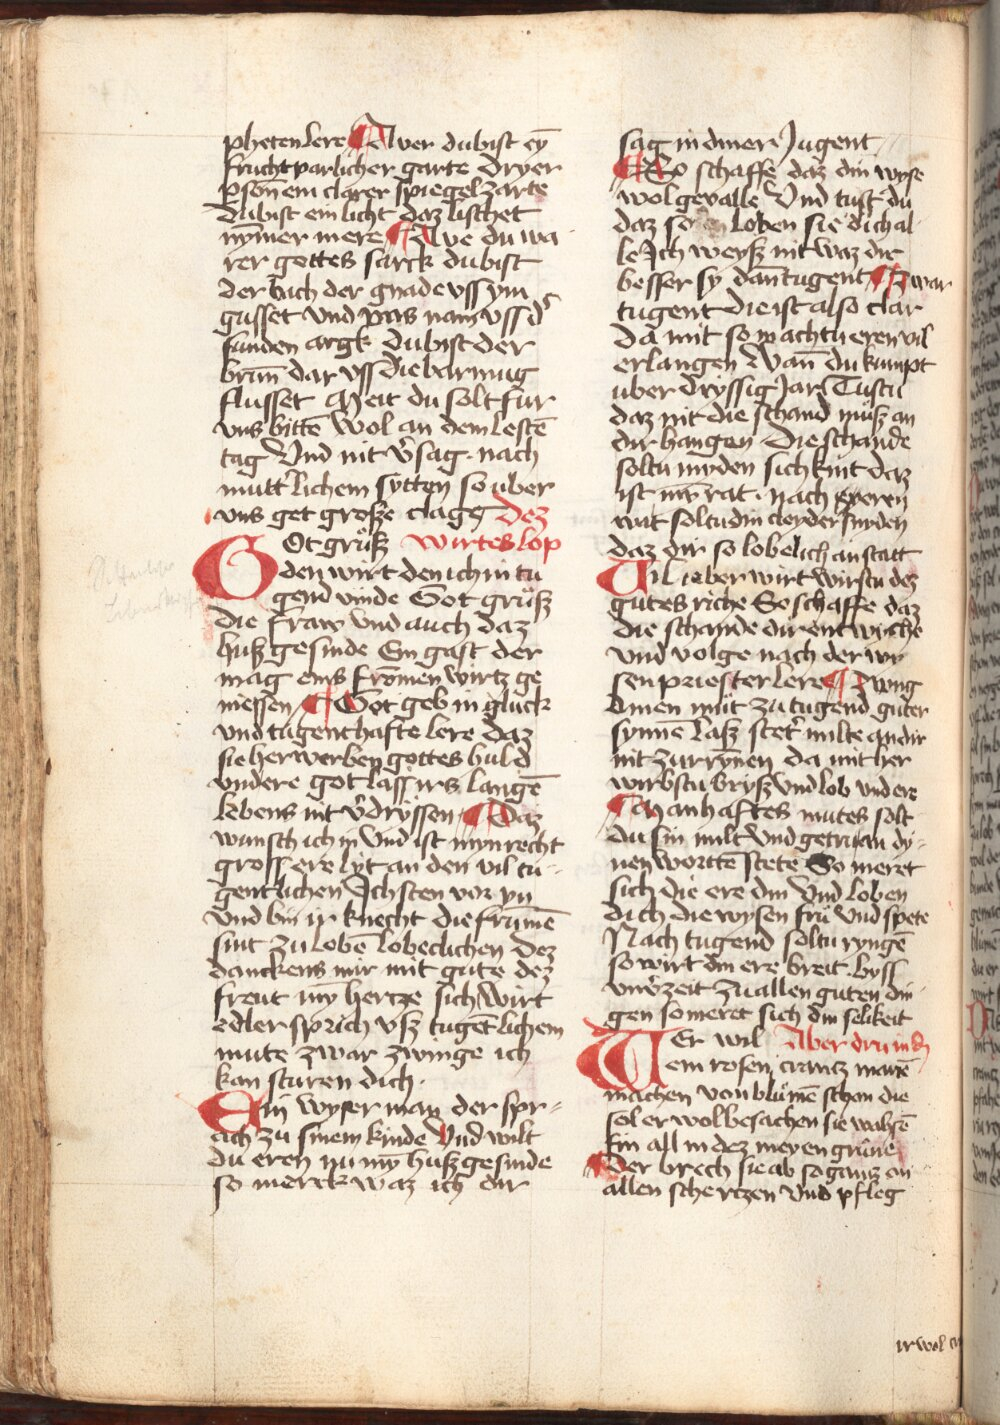 pheten lere Aver du bist ey̅
fruchtparlicher garte dryer
pson̅ ein clarer spiegel zarte
du bist ein licht daz lischet
nym̅er mere Ave du wa
rer gottes sarck du bist
der bach der gnade vss ym
gusset vnd vns nam vss d
sunden argk du bist der
brun̅ dar vss die barmug
flusset Meit du solt fur
vns bitte̅ wol an dem leste̅
tag Vnd nit v̉sag nach
mutt lichem sytten so uber
vns get große clage dez
Ot grůß wirtes lop
den wirt den ich in tu
gend vinde Got grůß
die fraw vnd auch daz
huß gesinde Ein gast der
mag eins from̅en wirtz ge
niessen Got geb in gluck
vnd tugenthafte lere daz
sie herwerben gottes huld
vndere got lass irs lange̅
lebens nit v̉dryssen Daz
wunsch ich in Vnd ist myn recht
gross ere lyt an den vil tu
gentlichen Ich sten vor yn
vnd bin ir knecht die frume̅
sint zu lobe̅ lobeclichen dez
danckens mir mit gute dez
freut my̅ hertze sich wirt
edler sprich vß tuge̅t lichem
mute zwar zwinge ich
kan sturen dich
Ein wyser man der spr
ach zu sinem kinde Vnd wilt
du eren nu my̅ huß gesinde
so merck waz ich dir
sag in diner Jugent
So schaffe daz din wyse
wol gevalle Vnd tust du
daz so loben sie dich al
le Ich weyß nit waz dir
besser sy dan̅ tugent Zwar
tugent die ist also clar
da mit so machtu eren vil
erlangen Wan̅ du kumpt
uber dryssig Jar Tustu
daz nit die schand můß an
dir hangen die schande
soltu myden sich kint daz
ist my̅ rat nach eeren
mit soltu din cleyder snyden
daz dir so lobelich an statt
Vil lieber wirt wirstu dez
gutes riche So schaffe daz
die schande dir entwiche
vnd volge nach der wy
sen priester lere Zwing
dinen můt zu tugend guter
synne̅ laß stet̉ milte an dir
nit zurryn̅en da mit her
wirbstu bryß vnd lob vnd ere
Manhaftes mutes solt
du sin milt vnd getruw dy
nen wortte̅ stete So meret
sich die ere din Vnd loben
dich die wysen frů vnd spete
Nach tugend soltu rynge̅
so wirt din ere breit byss
vnv̉zeit zu allen guten din
gen so meret sich din selikeit
Er wil Aber dru ind
ein rosen crantz mane̅
machen von blůme̅ schon die
sol er wol besachen sie wahse̅
sin all in dez meyen grůne
Der brech sie ab so gantz on
allen schertzen vnd pfleg
ir wol